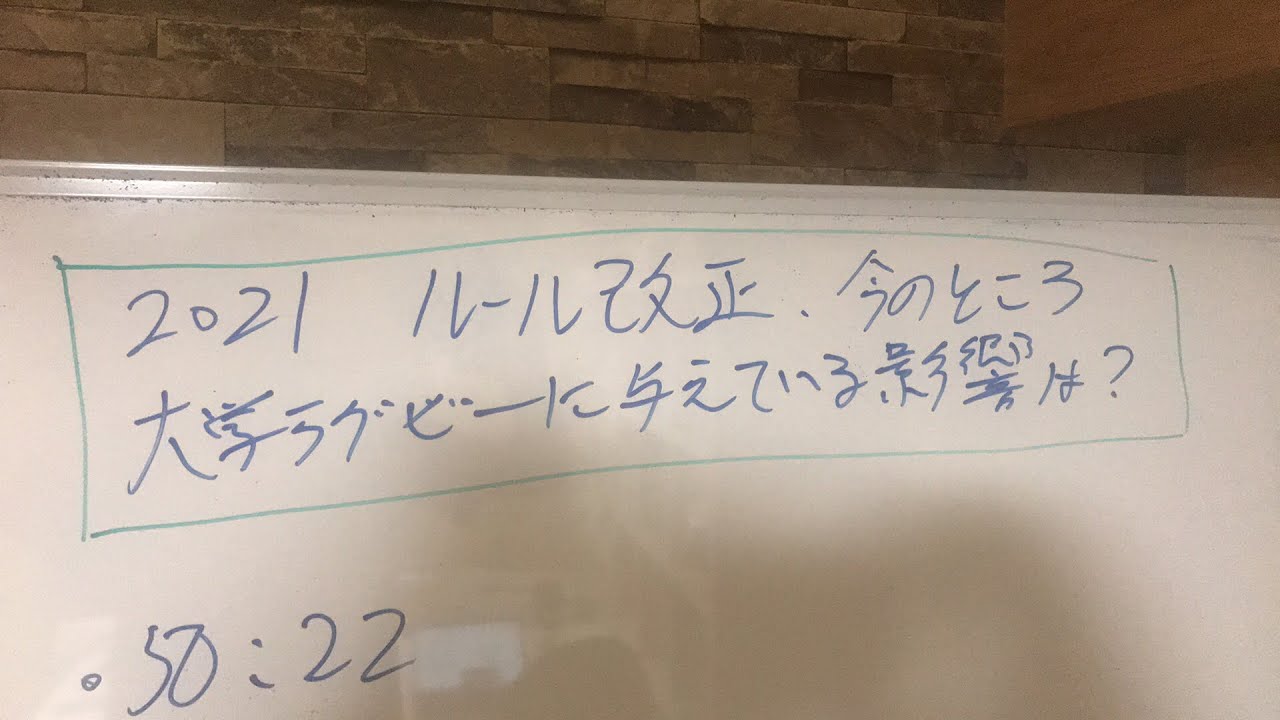 2021 ルール改正、今のところ
大学ラグビーに与えている影響は?
・50:22